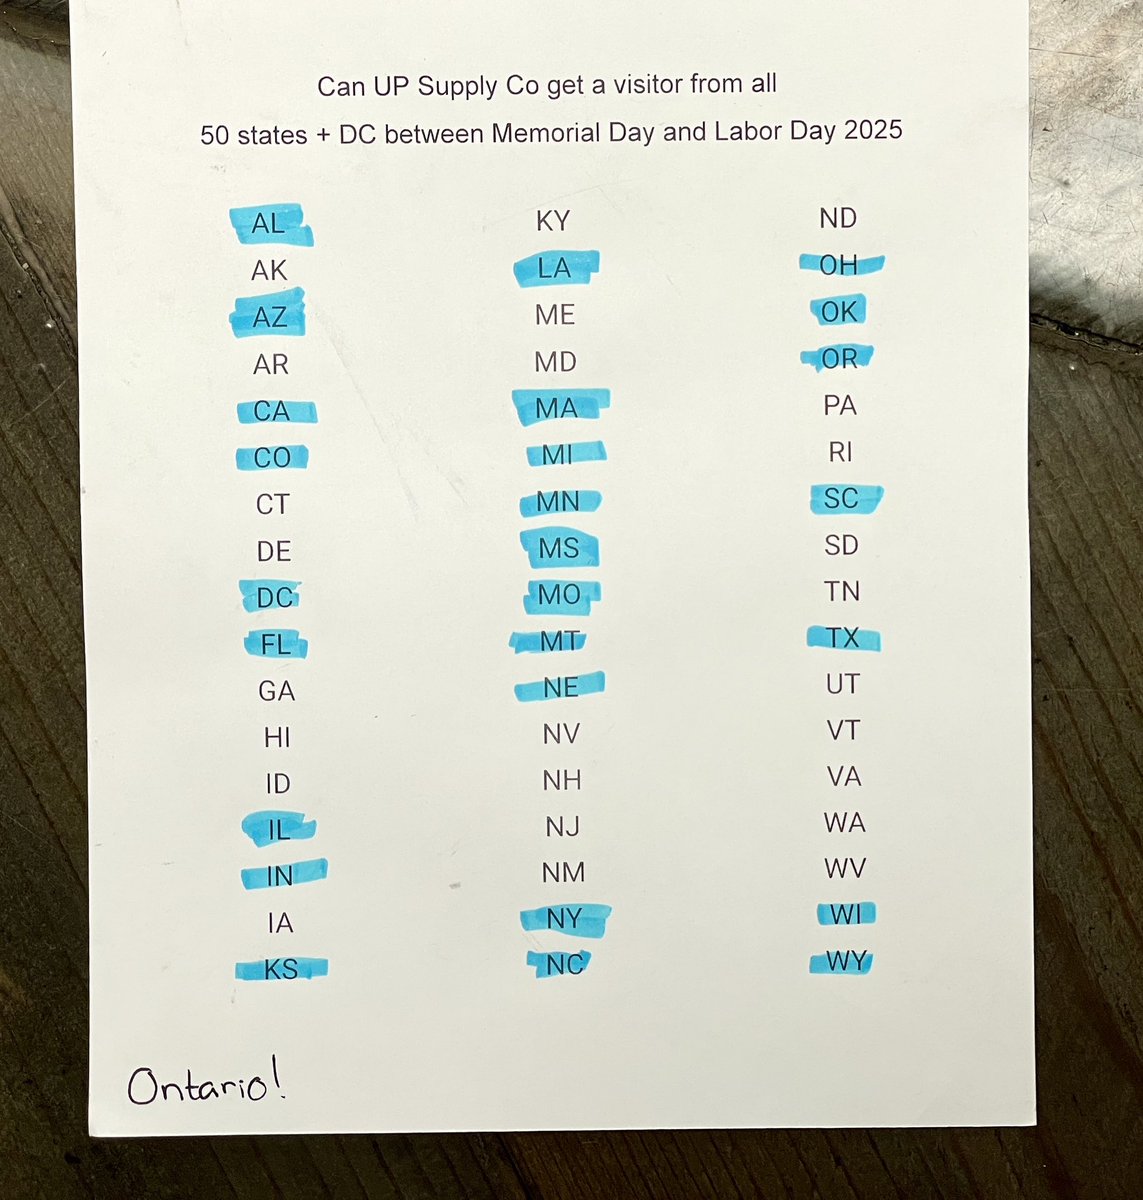 Can UP Supply Co get a visitor from all
50 states + DC between Memorial Day and Labor Day 2025
AL
AK
AZ
AR
CA
CO
CT
DE
DC
FL
GA
HI
ID
IL
IN
IA
KS
KY
LA
ME
MD
MA
MI
MN
MS
MO
MT
NE
NV
NH
NJ
NM
NY
NC
ND
OH
OK
OR
PA
RI
SC
SD
TN
TX
UT
VT
VA
WA
WV
WI
WY
Ontario!